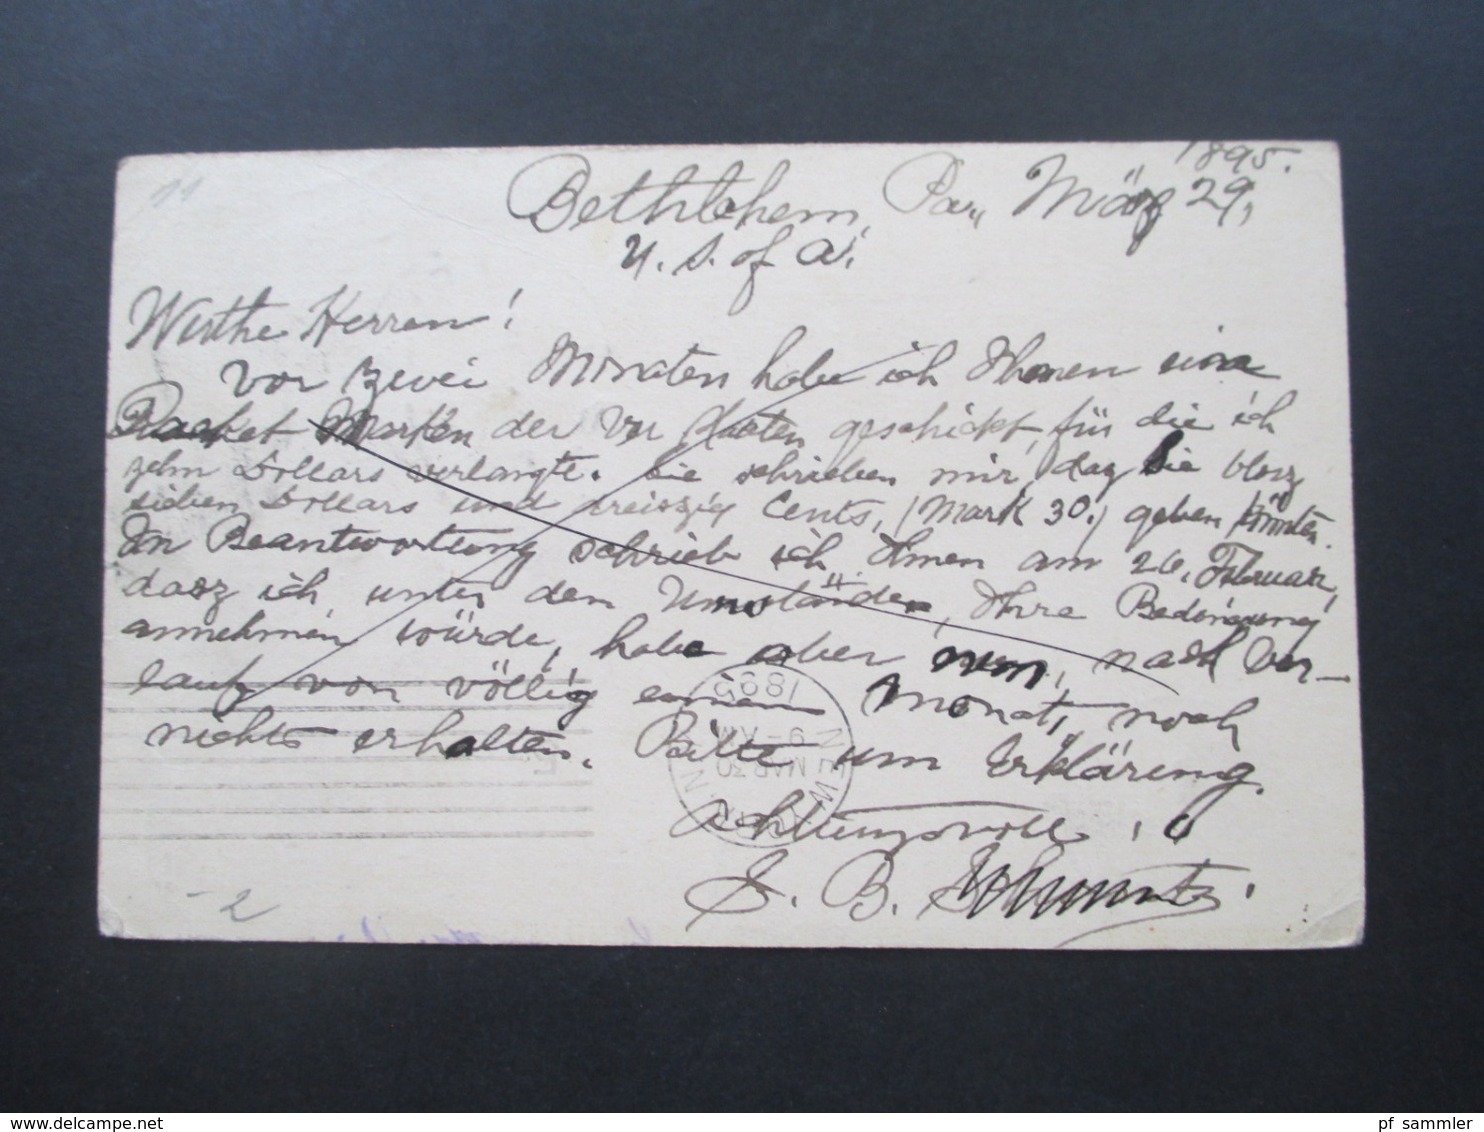 1895.
Bethlehem, Pa., März 29,
U. S. of A.
Werthe Herren!
Vor zwei Monaten habe ich Ihnen eine
Packet Marken der Ver Staaten geschickt, für die ich
zehn Dollars verlangte. Sie schrieben mir, dasz Sie blosz
sieben Dollars und dreiszig Cents, (Mark 30.) geben könnten.
In Beantwortung schrieb ich Ihnen am 26. Februar,
dasz ich, unter den Umständen, Ihre Bedingung
annehmen würde, habe aber nun, nach Ver-
lauf von völlig einem Monat, noch
nichts erhalten. Bitte um Erklärung.
Achtungsvoll,
B.
NEW
MAR 30
9-AM
1895
- 2
11
www.delcampe.net
pf_sammler